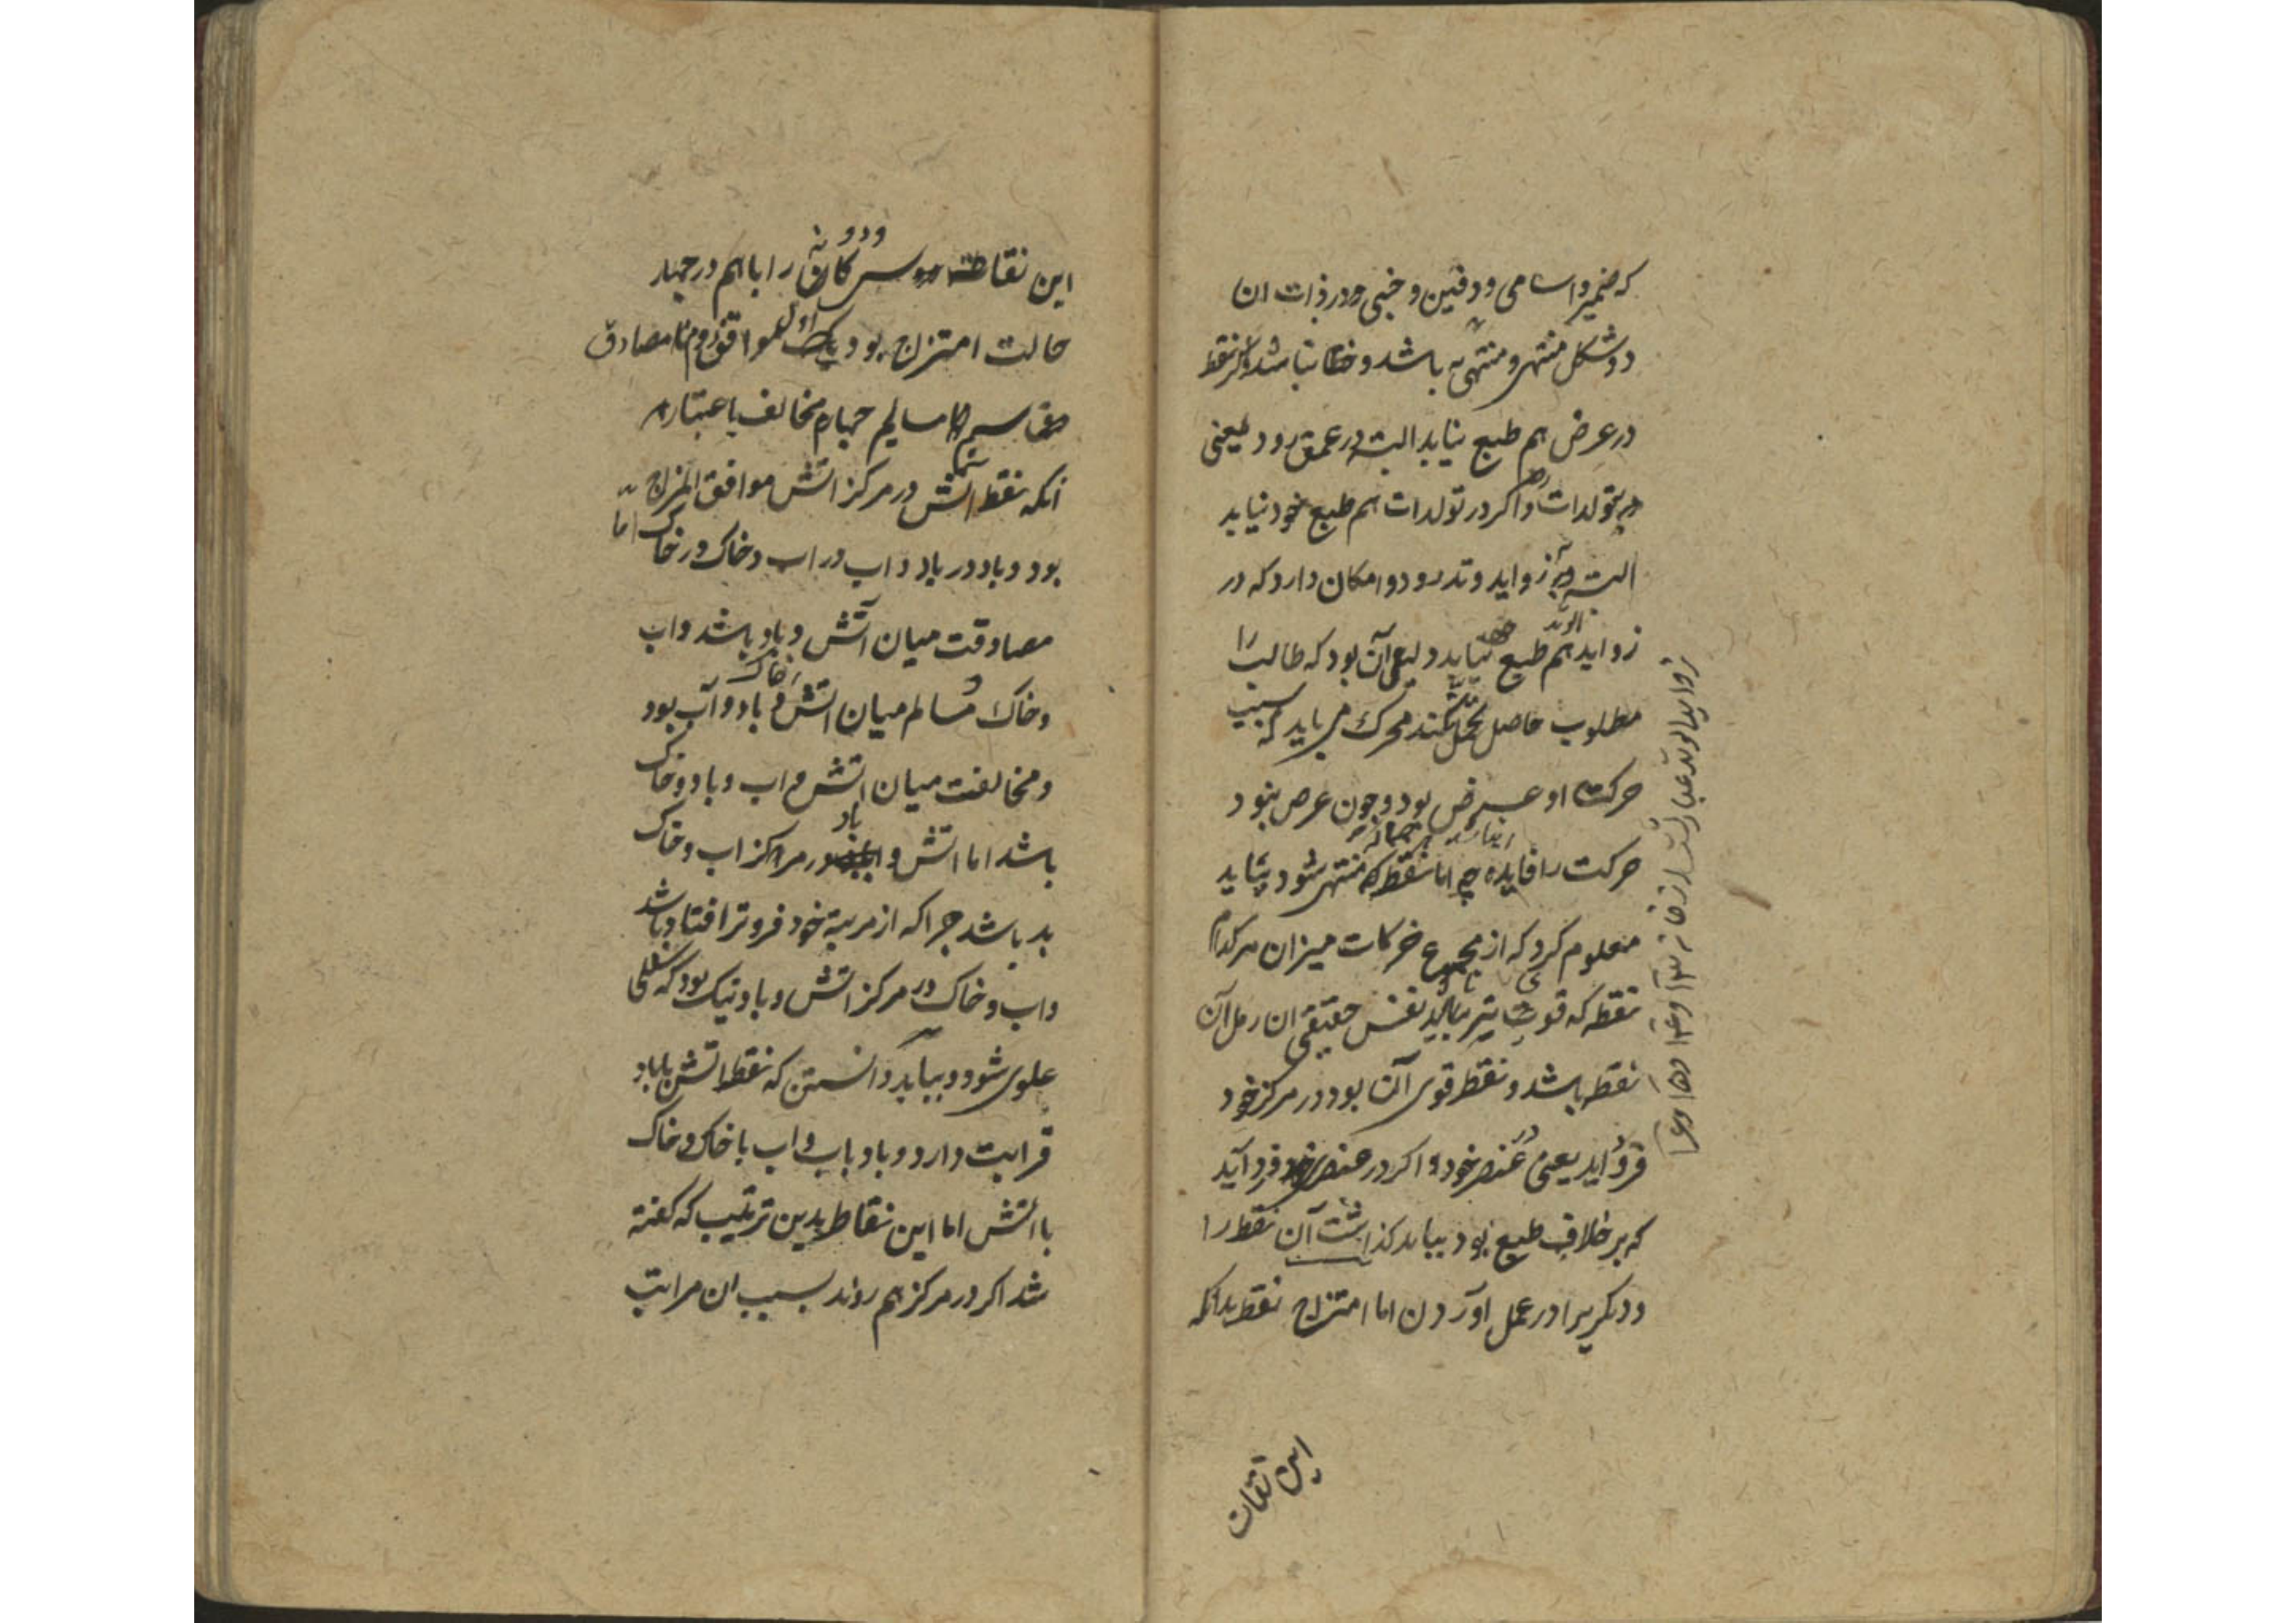 که ضمیر و اسامی و دفین و خبی و در ذات ان
دو شکل منتهی و منتهی به باشد و خطا نباشد و اکر نقط
در عرض هم طبع نیابد البته در عمق رود یعنی
در تولدات و اکر در تولدات هم طبع خود نیابد
البته در زواید وتد رود و امکان دارد که در
زواید الوتد هم طبع نیابد دلیل آن بود که طالب را
مطلوب حاصل نکند محرک می باید که سبب
حرکت او عرض بود و چون عرض نبود
حرکت را فایده چه اما نقطه که منتهی شود بباید
معلوم کرد که از مجموع حرکات میزان هر کدام
نقطه که قوی تر بباید نفس حقیقی ان رمل آن
نقطه باشد و نقطه قوی آن بود در مرکز خود
فرود اید یعنی در عنصر خود و اکر در عنصر خود فرود آید
که بر خلاف طبع بود بباید کذاشت آن نقطه را
و دیکریرا در عمل اوردن اما امتزاج نقط بدانکه
زواید الوتد عبارتست از خانه ۱۳ و ۱۴ و ۱۵ و ۱۶
این نقاط
این نقاط را باهم در چهار
حالت امتزاج بود یک اول موافق دوم مصادق
سیم مسالم چهارم مخالف باعتبار
آنکه نقطه اتش در مرکز اتش موافق المزاج
بود و باد در باد و اب در اب و خاک در خاک اما
مصادقت میان اتش و باد باشد و اب
و خاک و مسالم میان اتش و خاک و باد و آب بود
و مخالفت میان اتش و اب و باد و خاک
باشد اما اتش و باد در مراکز اب و خاک
بد باشد چرا که از مرتبه خود فروتر افتاده باشد
و اب و خاک در مرکز اتش و باد نیک بود که سفلی
علوی شود و بباید دانستن که نقطه اتش با باد
قرابت دارد و باد باب و اب با خاک و خاک
با اتش اما این نقاط بدین ترتیب که کفته
شد اکر در مرکز هم روند بسبب ان مراتب